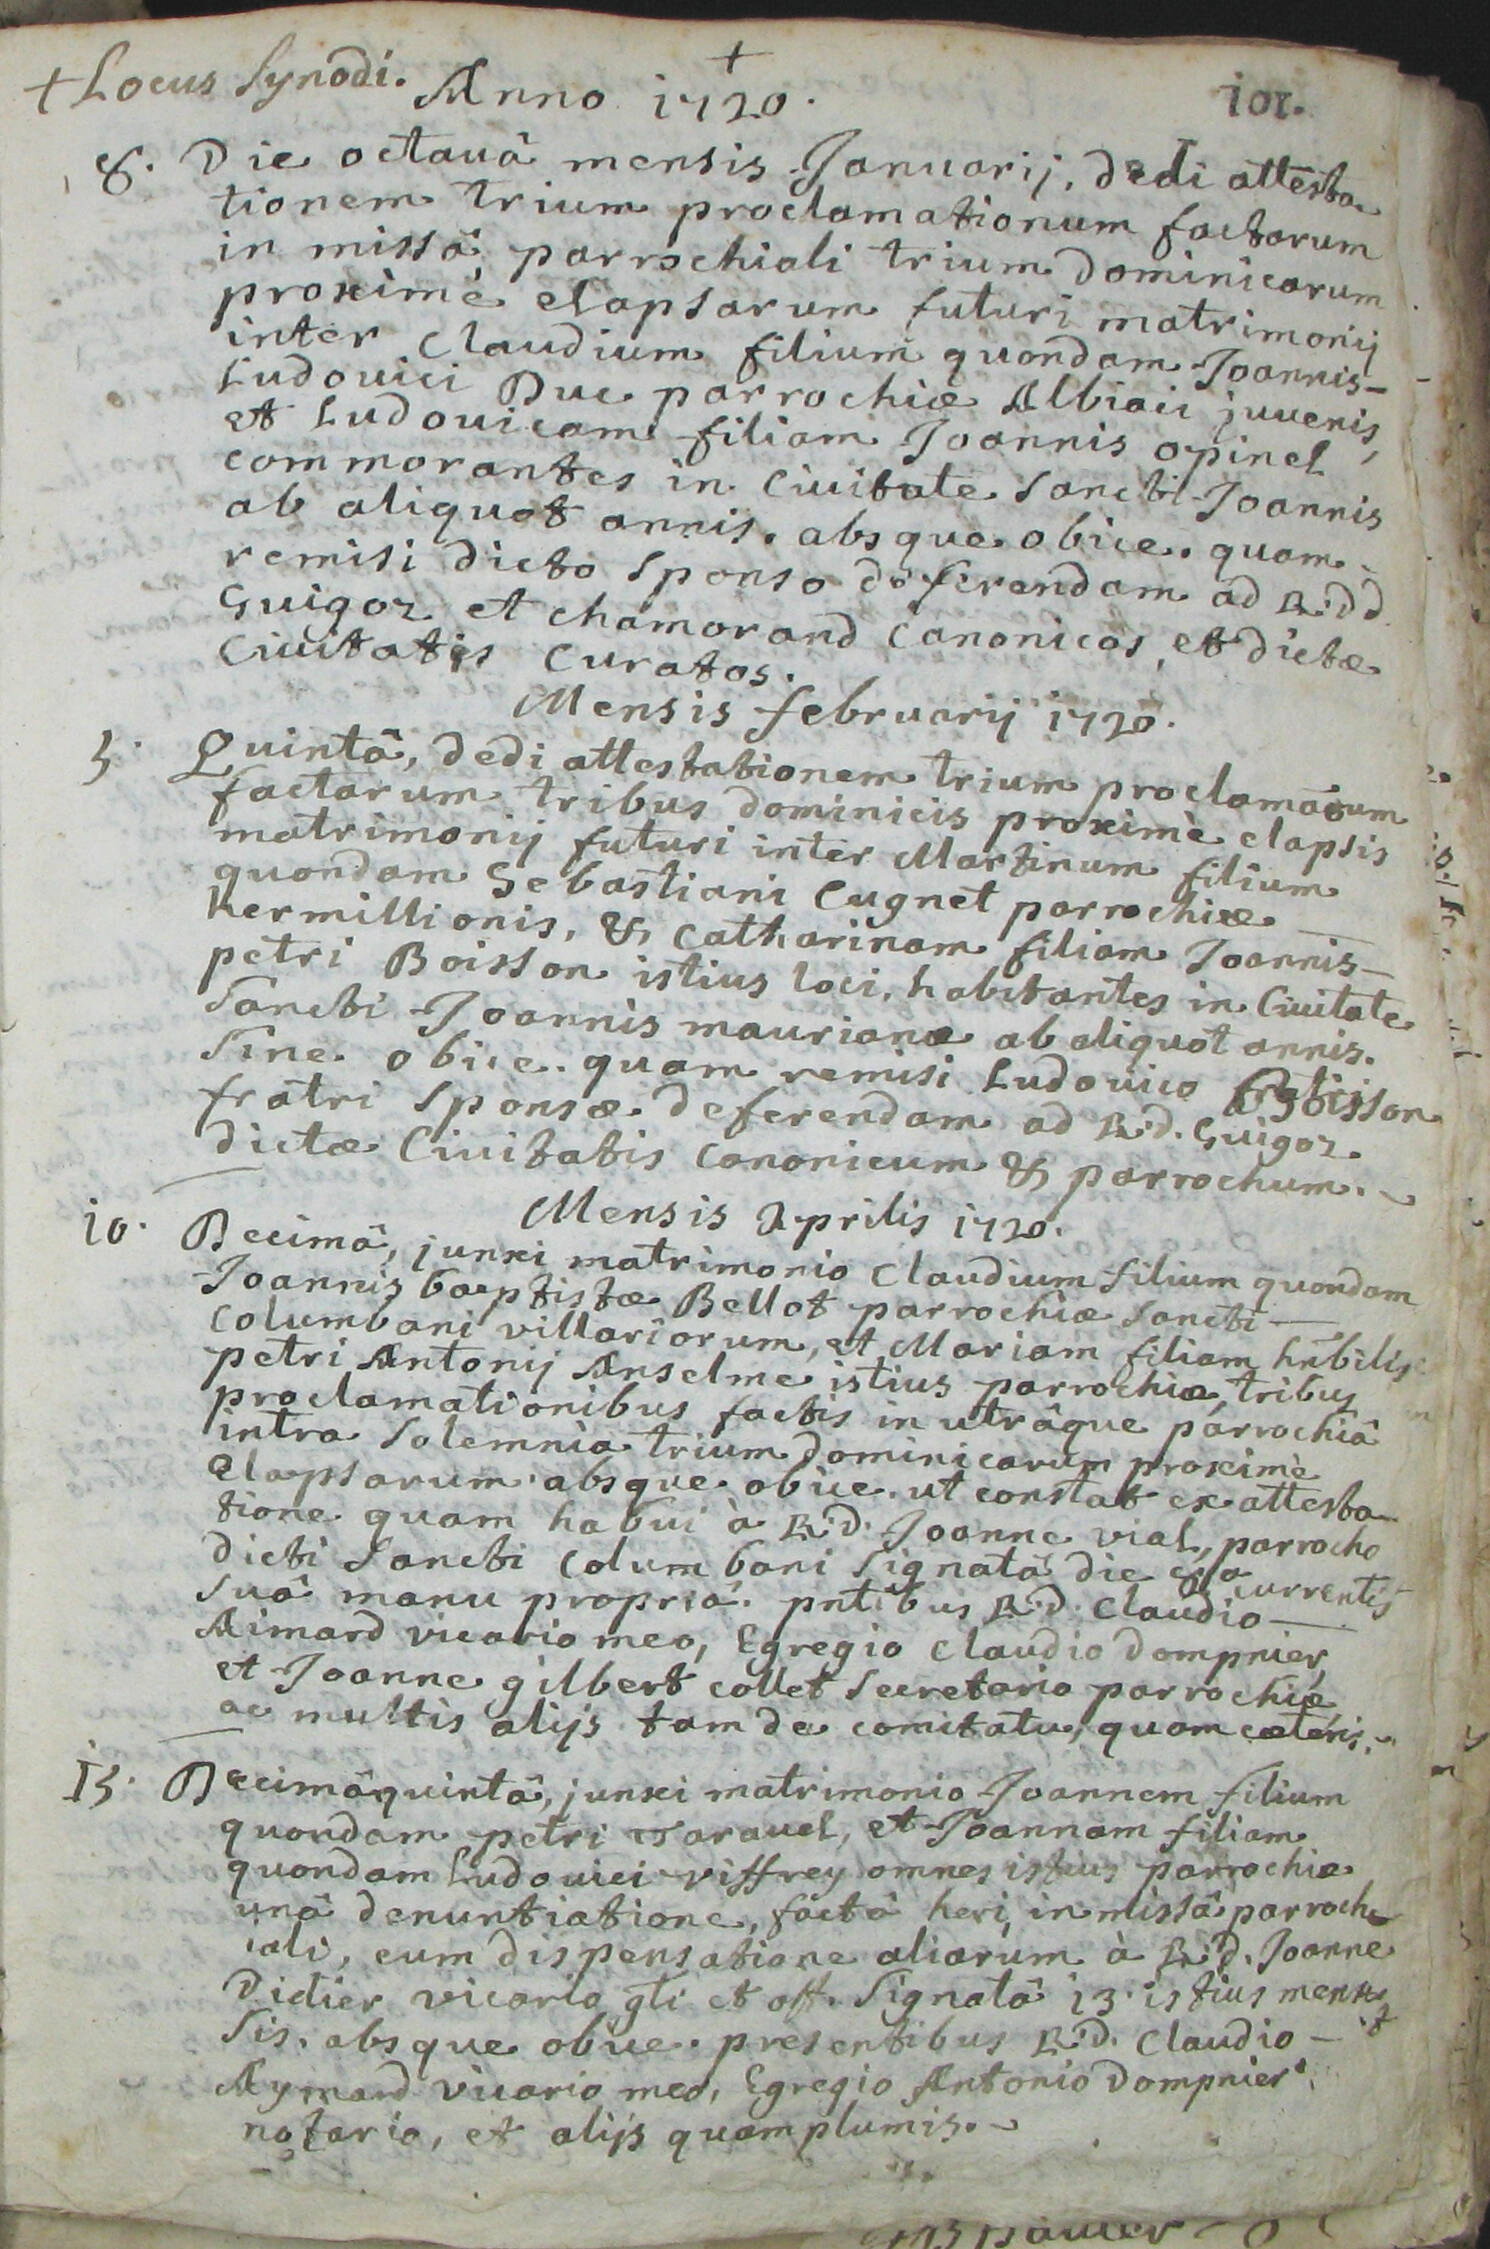 + Locus Synodi. Anno 1720. +
101.
8. Die octauâ mensis Januarij, dedi attesta
tionem trium proclamationum factarum
in missâ parrochiali trium dominicarum
proximè elapsarum futuri matrimonij
inter Claudium filium quondam Joannis-
Ludouici Duc parrochiæ Albiaci juvenis,
et Ludouicam filiam Joannis opinel
commorantes in Ciuitate Sancti Joannis
ab aliquot annis. absque obice. quam
remisi dicto Sponso deferendam ad R.dd
Guigoz et chamorand Canonicos, et dictæ
Ciuitatis Curatos.
Mensis februarij 1720.
5. Quintâ, dedi attestationem trium proclamaoum
factarum tribus dominicis proximè elapsis
matrimonij futuri inter Martinum filium
quondam Sebastiani Cugnet parrochiæ
hermillionis, & Catharinam filiam Joannis-
petri Boisson istius loci, habitantes in Ciuitate
Sancti Joannis maurianæ ab aliquot annis.
Sine obice. quam remisi Ludouico Boisson
fratri Sponsæ deferendam ad R.d. Guigoz
dictæ Ciuitatis Canonicum & parrochum.
Mensis Aprilis 1720.
10. Decimâ, junxi matrimonio Claudium filium quondam
Joannis baptistæ Bellot parrochiæ Sancti
Columbani villariorum, et Mariam filiam hnbilis
petri Antonij Anselme istius parrochiæ, tribus
proclamationibus factis in utrâque parrochiâ
intra Solemnia trium dominicarum proximè
elapsarum absque obice. ut constat ex attesta
tione quam habui à R.d. Joanne vial, parrocho
dicti Sancti Columbani Signatâ die 8a currentis
Suâ manu propriâ. pntibus R.d. Claudio
Aimard vicario meo, Egregio Claudio Dompnier,
et Joanne gilbert collet Secretario parrochiæ
ac multis alijs tam de comitatu, quam cæteris.
15. Decimâquintâ, junxi matrimonio Joannem filium
quondam petri Tarauel, et Joannam filiam
quondam Ludouici viffrey omnes istius parrochiæ
unâ denuntiatione, factâ heri, in missâ parroch
iali, cum dispensatione aliarum à R.d. Joanne
Didier vicario gli et off. Signatâ 13. istius men
sis. absque obice. presentibus R.d. Claudio
Aymard vicario meo, Egregio Antonio Dompnier
notario, et alijs quamplumis.